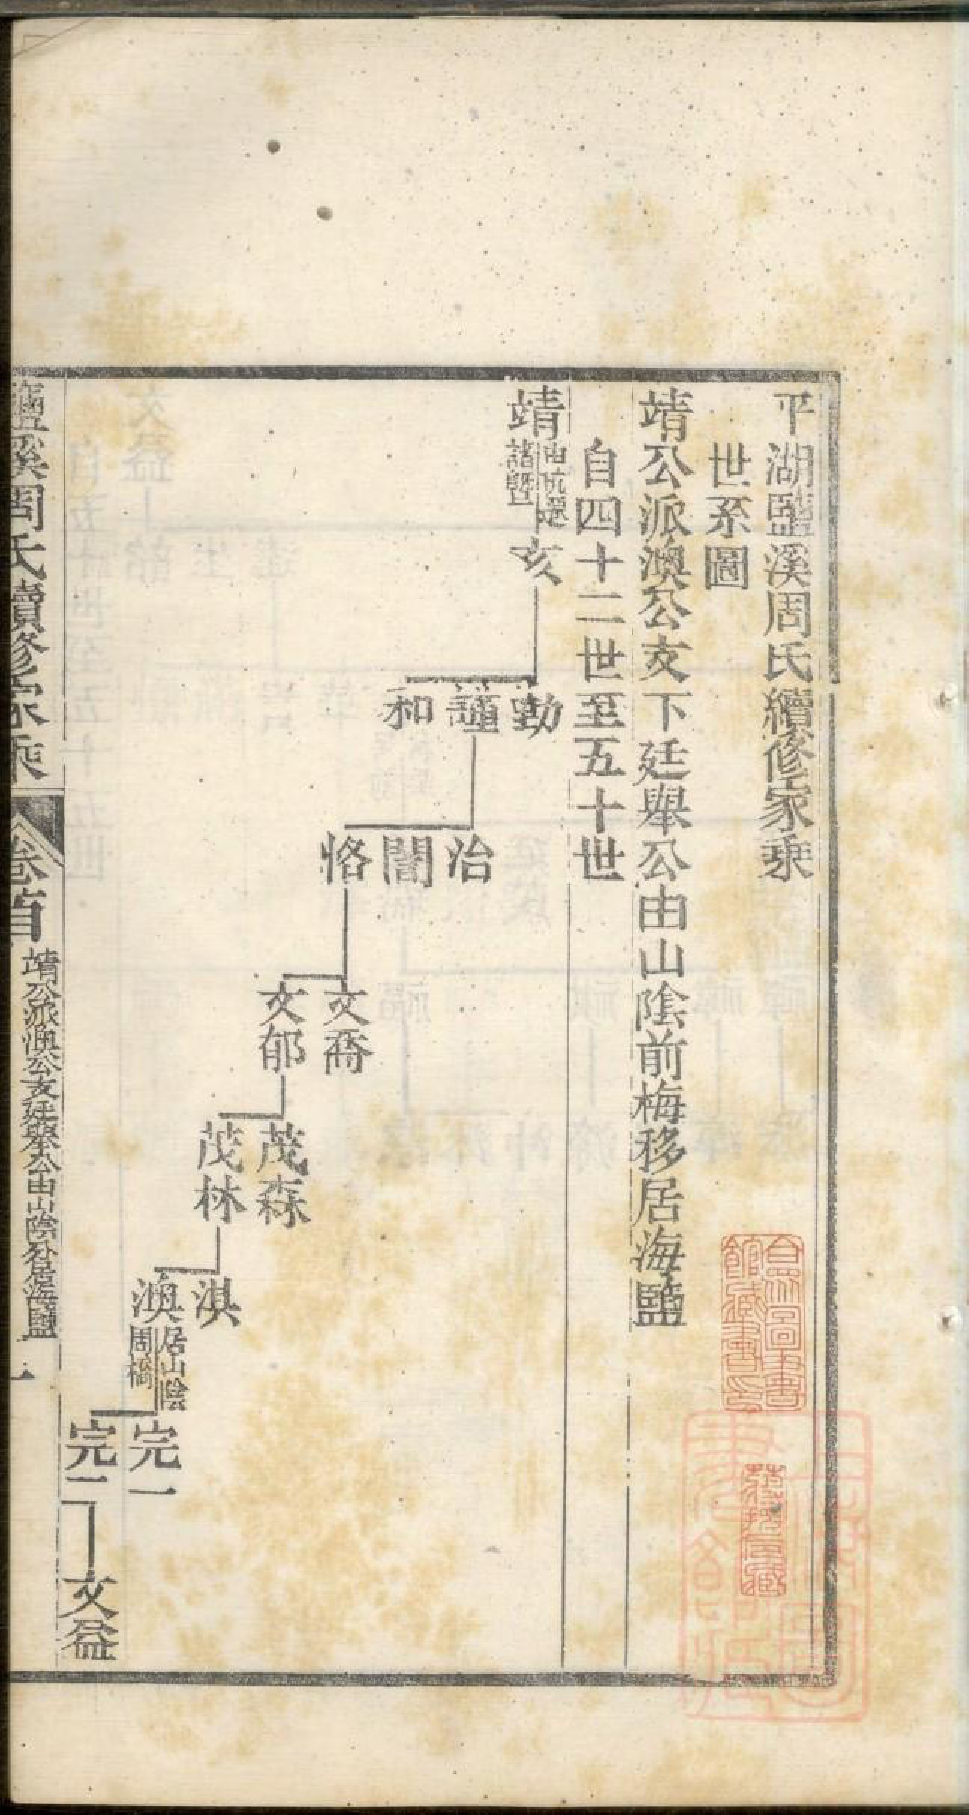 平湖鹽溪周氏續修家乘
世系圖
靖公派澳公支下廷舉公由山陰前梅移居海鹽
自四十二世至五十世
靖
由杭遷
諸暨
亥
勤
謹
和
治
闇
恪
文裔
文郁
茂森
茂林
淇
澳
居山陰
周橋
完一
完二
文益
鹽溪周氏續修家乘
卷首
靖公派澳公支廷舉公由山陰分居海鹽
一